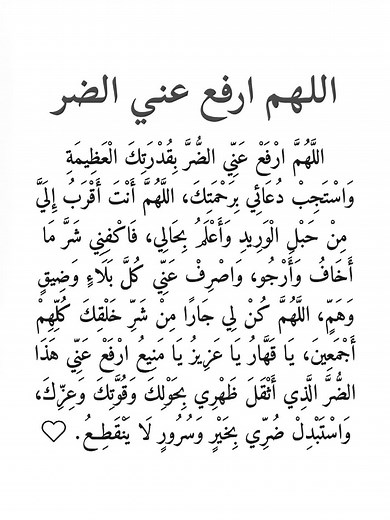 اللهم ارفع عني الضر
اللَّهُمَّ ارْفَعْ عَنِّي الضُّرَّ بِقُدْرَتِكَ الْعَظِيمَةِ
وَاسْتَجِبْ دُعَائِي بِرَحْمَتِكَ، اللَّهُمَّ أَنْتَ أَقْرَبُ إِلَيَّ
مِنْ حَبْلِ الْوَرِيدِ وَأَعْلَمُ بِحَالِي، فَاكْفِنِي شَرَّ مَا
أَخَافُ وَأَرْجُو، وَاصْرِفْ عَنِّي كُلَّ بَلَاءٍ وَضِيقٍ
وَهَمٍّ، اللَّهُمَّ كُنْ لِي جَارًا مِنْ شَرِّ خَلْقِكَ كُلِّهِمْ
أَجْمَعِينَ، يَا قَهَّارُ يَا عَزِيزُ يَا مَنِيعُ ارْفَعْ عَنِّي هَذَا
الضُّرَّ الَّذِي أَثْقَلَ ظَهْرِي بِحَوْلِكَ وَقُوَّتِكَ وَعِزِّكَ،
وَاسْتَبْدِلْ ضُرِّي بِخَيْرٍ وَسُرُورٍ لَا يَنْقَطِعُ. ♡